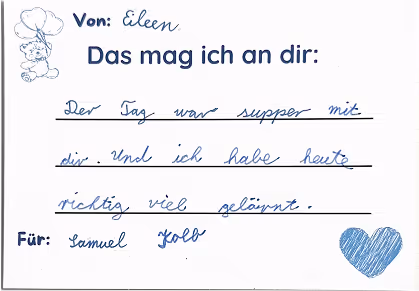 Von: Eileen
Das mag ich an dir:
Der Tag war supper mit
dir. Und ich habe heute
richtig viel geläirnt.
Für: Samuel Kolb